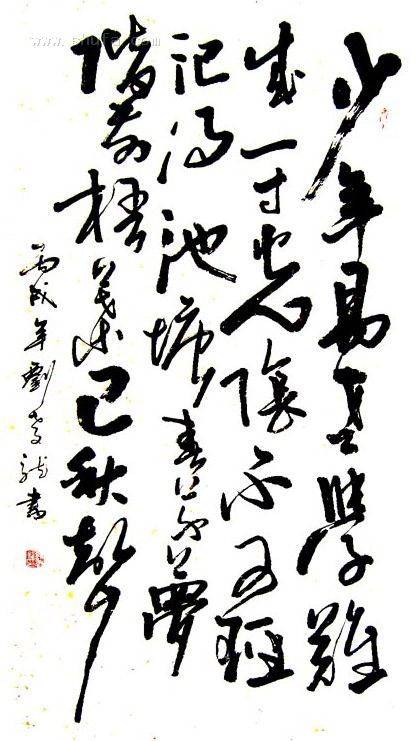 少年易老學難
成一寸光陰不可輕
记得池塘春草夢
階前梧葉已秋聲
丙戌年劉書